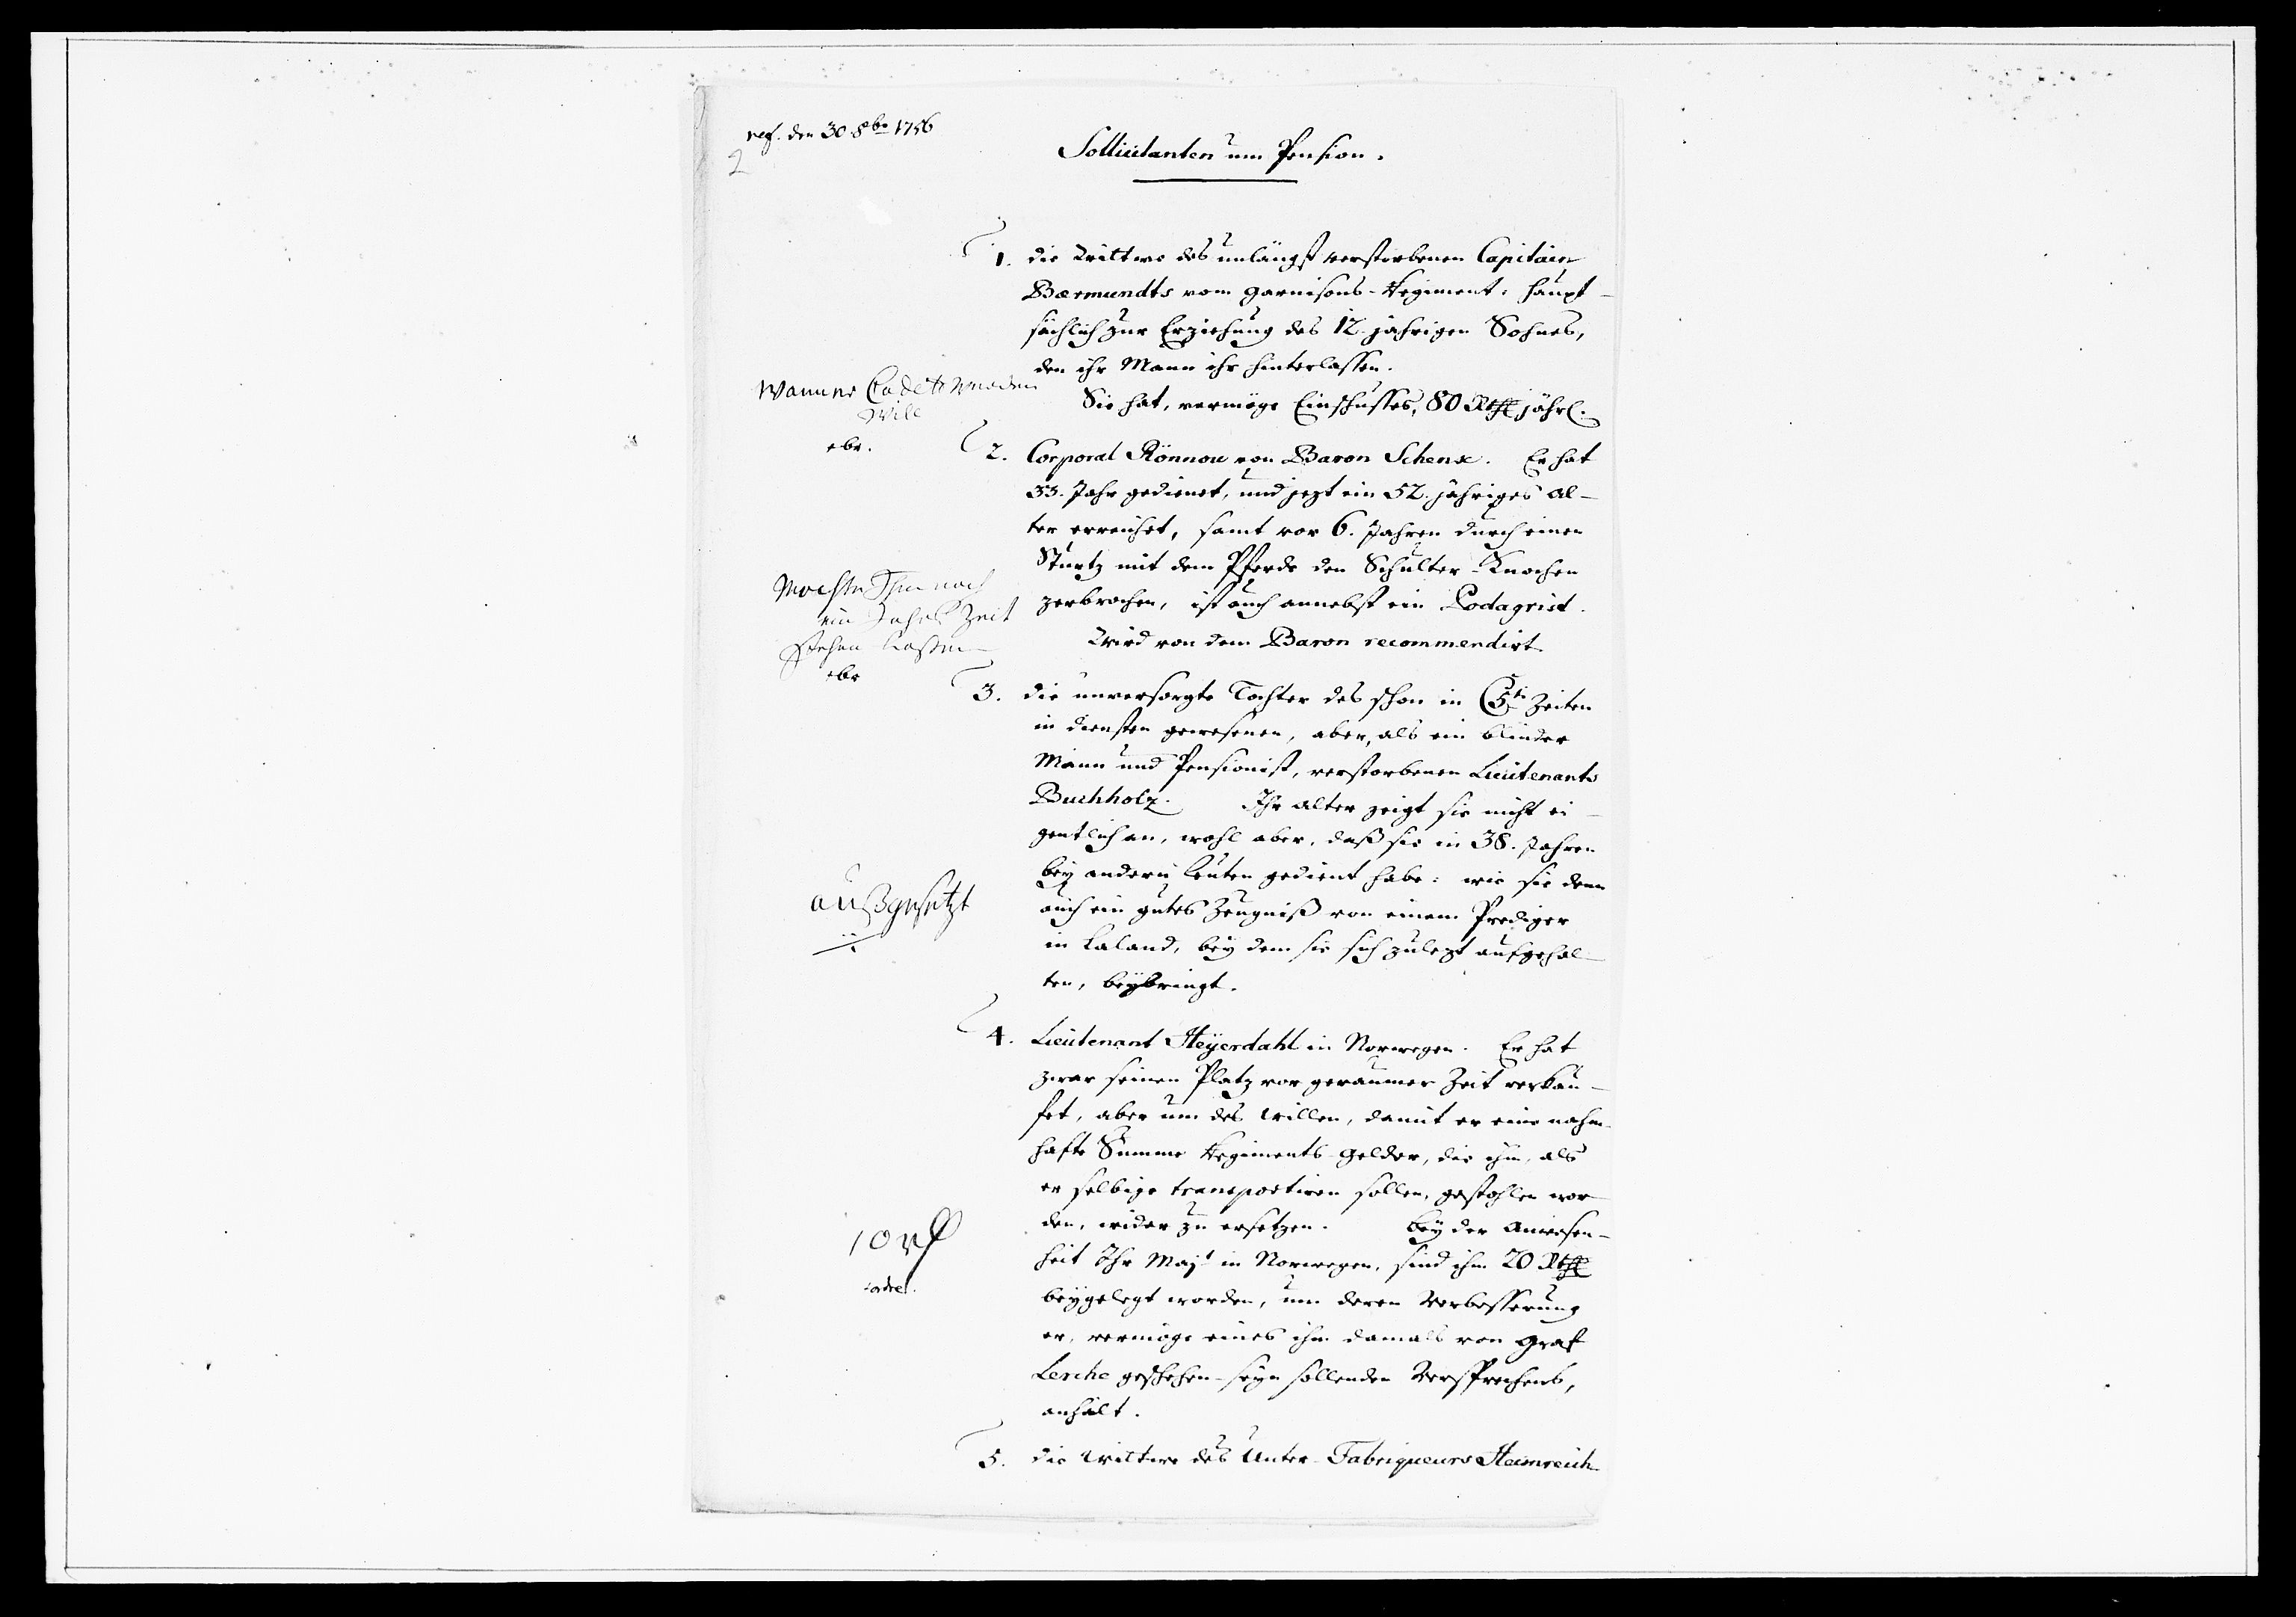 ref. den 30 8br 1756
2
Sollicitanten um Pension.
1. die Wittwe des unlängst verstorbenen Capitain
Bærmundts vom Garnisons-Regiment: haupt-
sächlich zur Erziehung des 12. jährigen Sohnes,
den ihr Mann ihr hinterlassen.
Sie hat, vermöge Einschusses, 80 Rthl jährl.
Wann er Cadett werden
will
ebr.
2. Corporal Rönnow von Baron Schenx. Er hat
33. Jahr gedienet, und jezt ein 52. jähriges Al-
ter erreichet, samt vor 6. Jahren durch einen
Sturtz mit dem Pferde den Schulter-Knochen
zerbrochen, ist auch annebst ein Podagrist.
Wird von dem Baron recommendirt.
Mochte Ihm noch
ein Jahr Zeit
stehen lassen
ebr
3. die unversorgte Tochter des schon in C 5ti Zeiten
in diensten gewesenen, aber, als ein blinder
Mann und Pensionist, verstorbenen Lieutenants
Buchholz. Ihr Alter zeigt sie nicht ei-
gentlich an, wohl aber, daß sie in 38. Jahren
bey andern Leuten gedient habe: wie sie denn
auch ein gutes Zeugniß von einem Prediger
in Laland, bey dem sie sich zulezt aufgehal-
ten, beybringt.
außgesetzt
4. Lieutenant Heyerdahl in Norwegen. Er hat
zwar seinen Platz vor geraumer Zeit verkau-
fet, aber um des willen, damit er eine nahm-
hafte Summe Regiments-Gelder, die ihm, als
er selbige transportiren sollen, gestohlen wor-
den, wider zu ersetzen. Bey der Anwesen-
heit Ihr Majt in Norwegen, sind ihm 20 Rthl
beygelegt worden, um deren Verbesserung
er, vermöge eines ihm damals von Graf
Lerche geschehen-seyn sollenden Versprechens,
anhält.
10 rthl
ordre.
5. die Wittwe des Unter-Fabriqueurs Heimreich